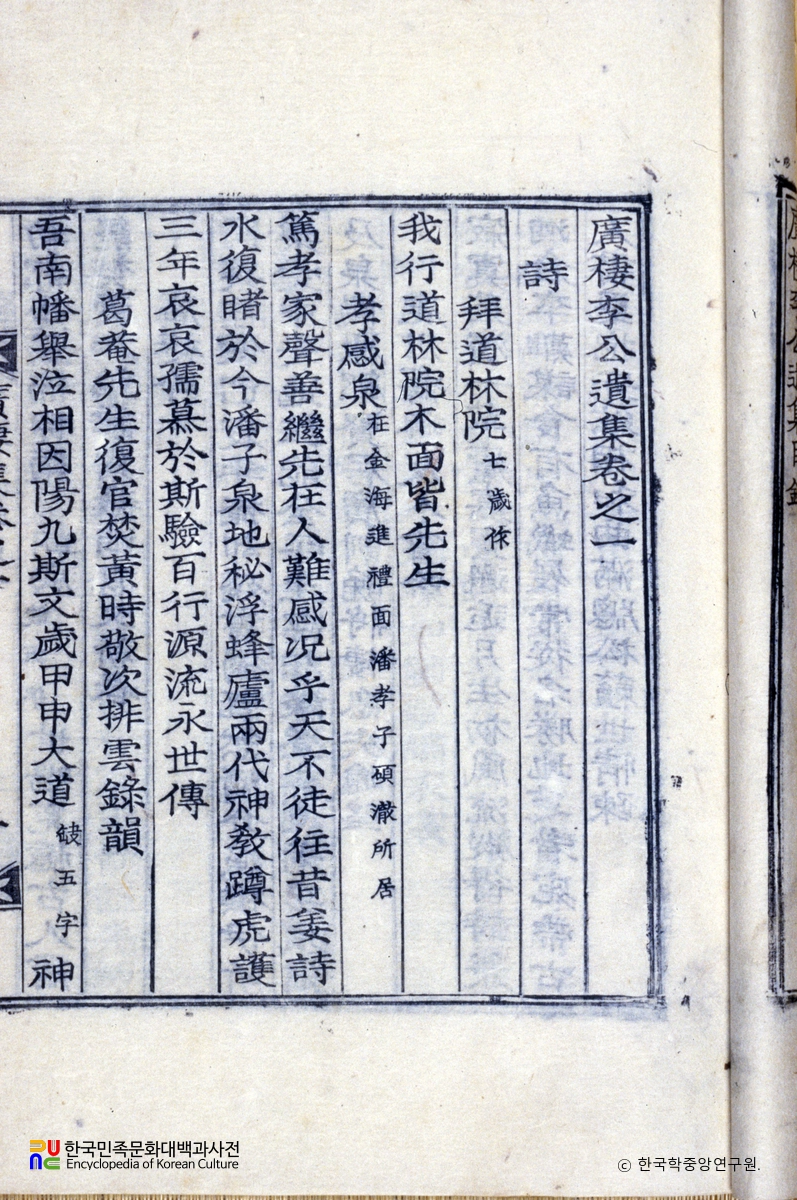 廣棲李公遺集卷之一
詩
拜道林院 七歲作
我行道林院木面皆先生
孝感泉 在金海進禮面潘孝子碩澈所居
篤孝家聲善繼先在人難感況乎天不徒往昔姜詩
水復睹於今潘子泉地秘浮蜂廬兩代神敎蹲虎護
三年哀哀孺慕於斯驗百行源流永世傳
葛菴先生復官焚黃時敬次排雲錄韻
吾南幡舉泣相因陽九斯文歲甲申大道 缺五字 神
한국민족문화대백과사전
Encyclopedia of Korean Culture
© 한국학중앙연구원.